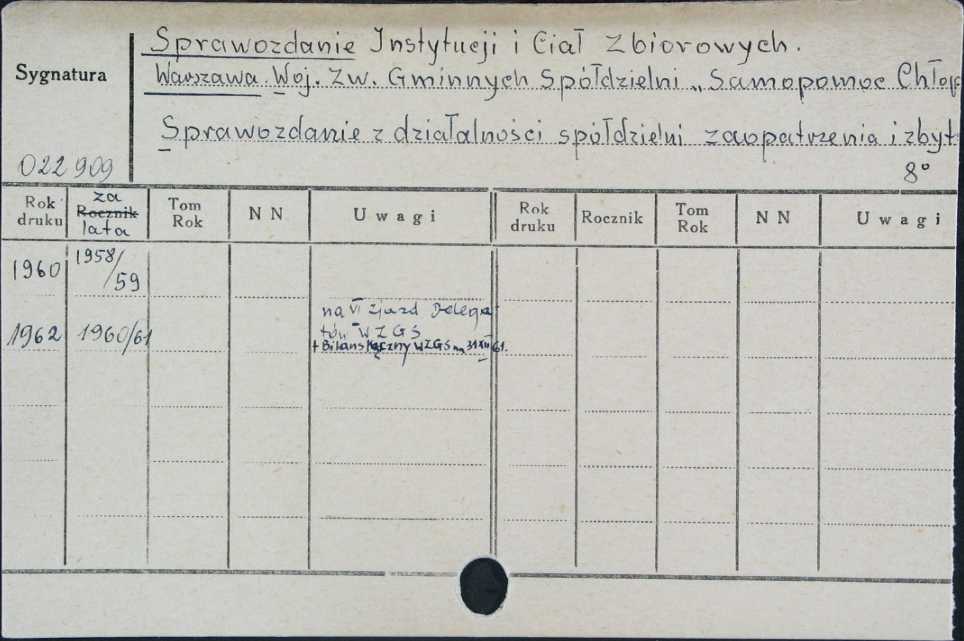 Sprawozdanie Instytucji i Ciał Zbiorowych.
Sygnatura
Warszawa. Woj. Zw. Gminnych Spółdzielni „Samopomoc Chłop
Sprawozdanie z działalności spółdzielni zaopatrzenia i zbyt
022 909
8°
Rok druku za Rocznik lata Tom Rok N N U w a g i Rok druku Rocznik Tom Rok N N U w a g i
1960 1958/59
1962 1960/61 na VI zjazd Delega
tów WZGS
+ Bilans łączny WZGS na 31 XII 61.